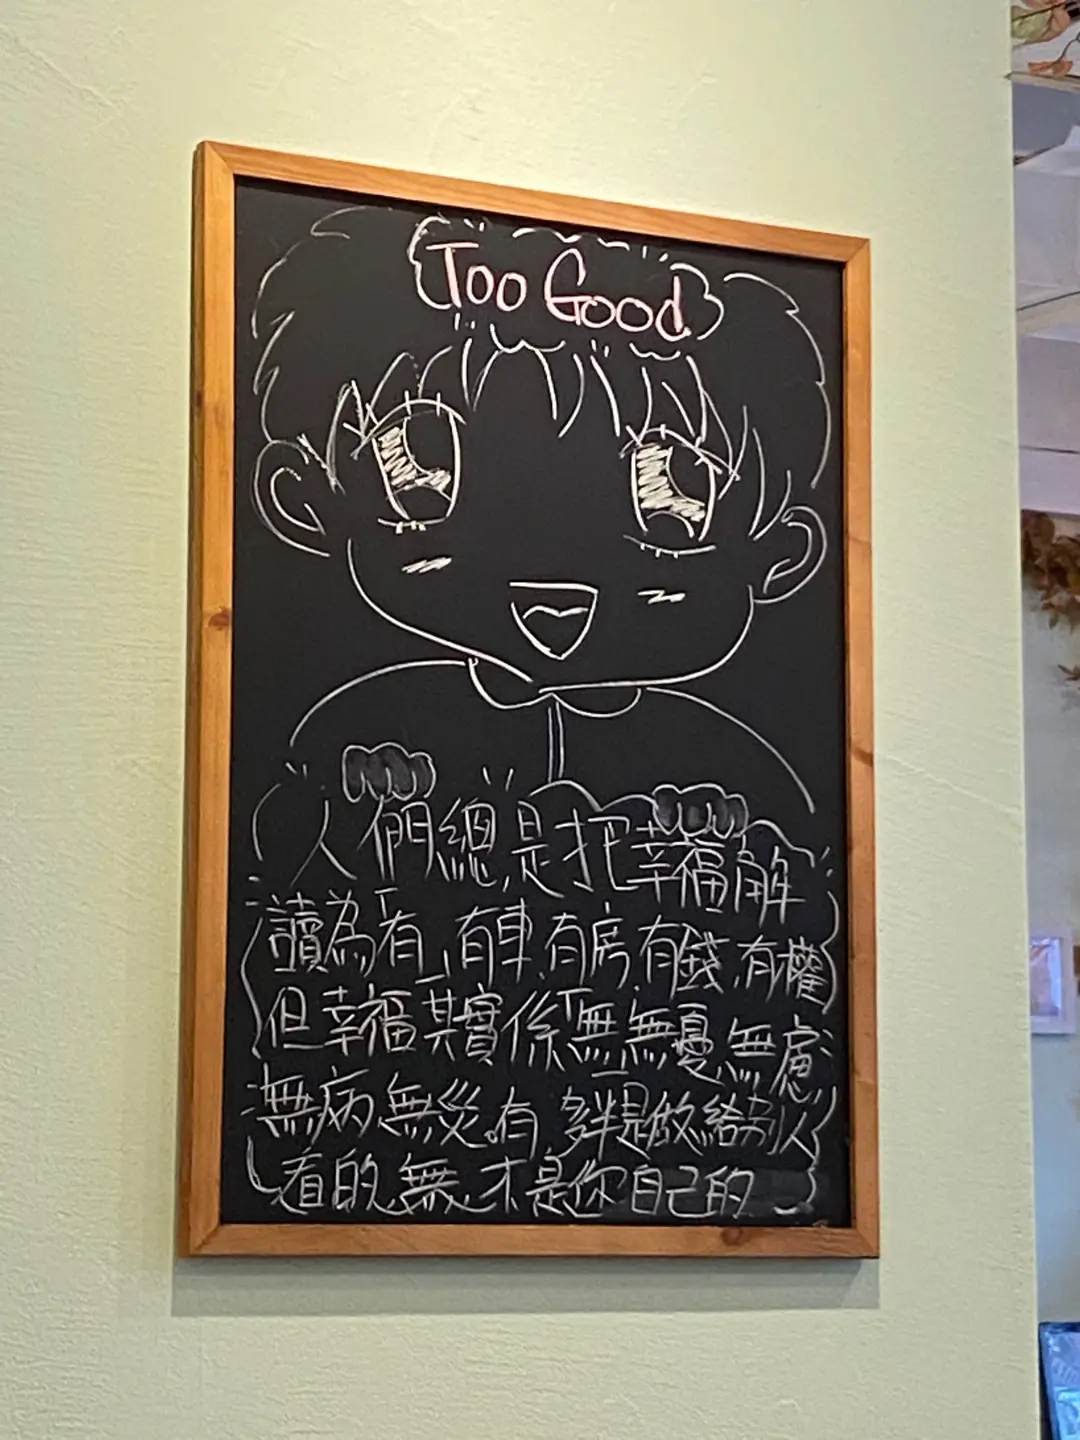 Too Good
人們總是把幸福解
讀為「有」有車,有房,有錢,有權
但幸福其實係「無」無憂,無慮
無病,無災。有,多半是做給別人
看的,無,才是你自己的